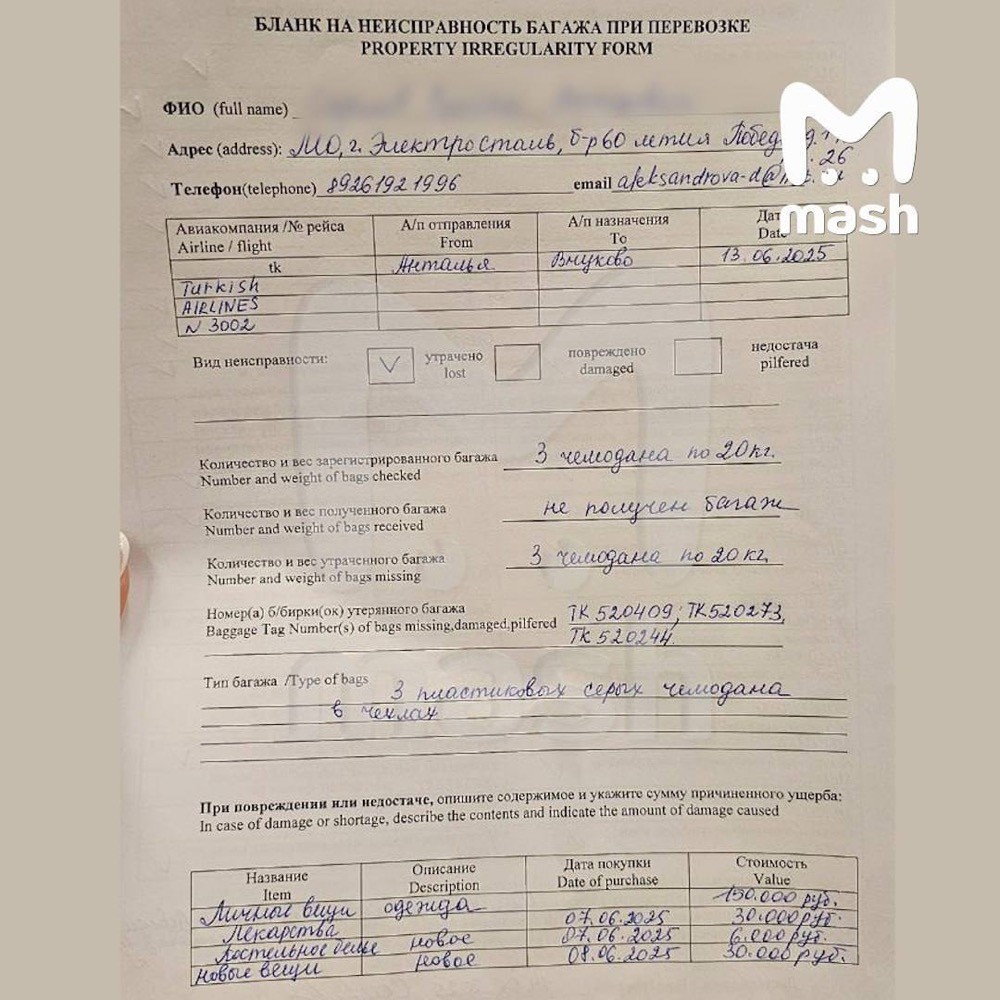 БЛАНК НА НЕИСПРАВНОСТЬ БАГАЖА ПРИ ПЕРЕВОЗКЕ
PROPERTY IRREGULARITY FORM
mash
ФИО (full name)
Адрес (address): МО, г. Электросталь, б-р 60 летия Победы, д.
26
Телефон(telephone) 89261921996 email aleksandrova-d@
Авиакомпания /№ рейса А/п отправления А/п назначения
Airline / flight From To Date
tk Анталья Внуково 13.06.2025
Turkish
AIRLINES
N 3002
Вид неисправности: V утрачено повреждено недостача
lost damaged pilfered
Количество и вес зарегистрированного багажа 3 чемодана по 20 кг.
Number and weight of bags checked
Количество и вес полученного багажа не получен багаж
Number and weight of bags received
Количество и вес утраченного багажа 3 чемодана по 20 кг.
Number and weight of bags missing
Номер(а) б/бирки(ок) утерянного багажа ТК 520409; ТК520273,
Baggage Tag Number(s) of bags missing,damaged,pilfered ТК 520244.
Тип багажа /Type of bags 3 пластиковых серых чемодана
в чехлах
mash
При повреждении или недостаче, опишите содержимое и укажите сумму причиненного ущерба:
In case of damage or shortage, describe the contents and indicate the amount of damage caused
Название Описание Дата покупки Стоимость
Item Description Date of purchase Value
Личные вещи одежда 150.000 руб.
Лекарства 07.06.2025 30.000 руб.
Постельное белье новое 07.06.2025 6.000 руб.
новые вещи новое 08.06.2025 30.000 руб.